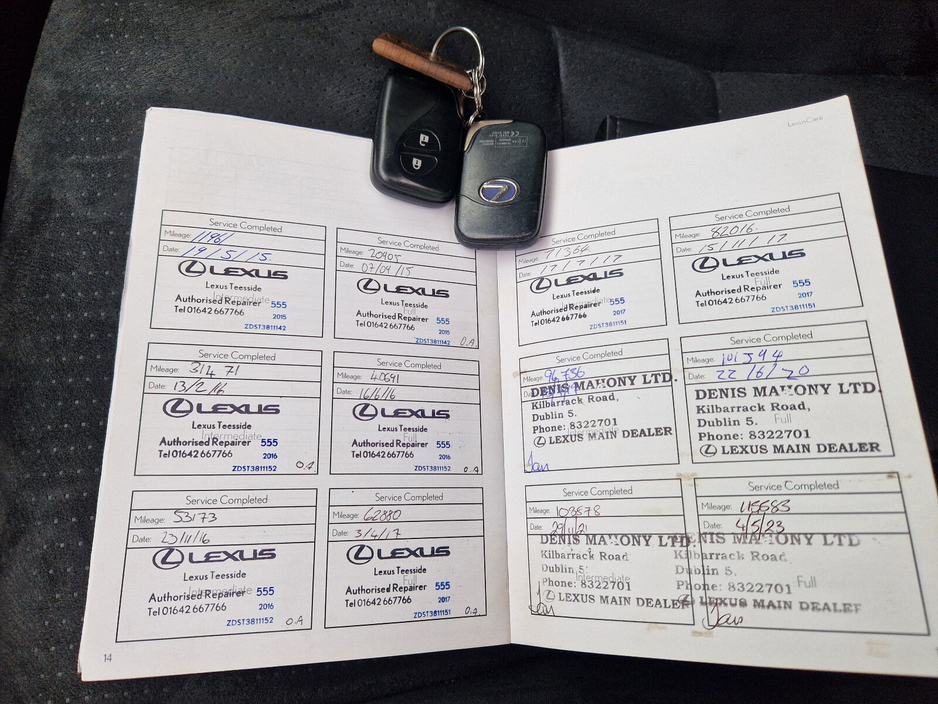 LexusCare
Service Completed
Mileage: 11961
Date: 19/5/15.
LEXUS
Lexus Teesside
Intermediate
Authorised Repairer 555
Tel 01642 667766 2015
ZDST3811142
Service Completed
Mileage: 20905
Date: 07/09/15
LEXUS
Lexus Teesside
Full
Authorised Repairer 555
Tel 01642 667766 2015
ZDST3811142 O.A
Service Completed
Mileage: 31471
Date: 13/2/16
LEXUS
Lexus Teesside
Intermediate
Authorised Repairer 555
Tel 01642 667766 2016
ZDST3811152 O.A
Service Completed
Mileage: 40691
Date: 16/6/16
LEXUS
Lexus Teesside
Full
Authorised Repairer 555
Tel 01642 667766 2016
ZDST3811152 O.A
Service Completed
Mileage: 53173
Date: 23/11/16
LEXUS
Lexus Teesside
Intermediate
Authorised Repairer 555
Tel 01642 667766 2016
ZDST3811152 O.A
Service Completed
Mileage: 62880
Date: 3/4/17
LEXUS
Lexus Teesside
Full
Authorised Repairer 555
Tel 01642 667766 2017
ZDST3811151 O.A
14
Service Completed
Mileage: 71364
Date: 17/7/17
LEXUS
Lexus Teesside
Intermediate
Authorised Repairer 555
Tel 01642 667766 2017
ZDST3811151
Service Completed
Mileage: 82016.
Date: 15/11/17
LEXUS
Lexus Teesside
Full
Authorised Repairer 555
Tel 01642 667766 2017
ZDST3811151
Service Completed
Mileage: 96756
Date:
DENIS MAHONY LTD.
Kilbarrack Road,
Dublin 5.
Phone: 8322701
Intermediate
LEXUS MAIN DEALER
Service Completed
Mileage: 101394
Date: 22/6/20
DENIS MAHONY LTD.
Kilbarrack Road,
Dublin 5.
Full
Phone: 8322701
LEXUS MAIN DEALER
Service Completed
Mileage: 108878
Date: 29/11/21
DENIS MAHONY LTD
Kilbarrack Road
Dublin 5.
Intermediate
Phone: 8322701
LEXUS MAIN DEALER
Service Completed
Mileage: 115583
Date: 4/5/23
DENIS MAHONY LTD
Kilbarrack Road
Dublin 5.
Full
Phone: 8322701
LEXUS MAIN DEALER